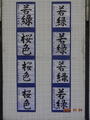 若緑
若緑
若緑
若緑
若緑
桜色
若緑
桜色